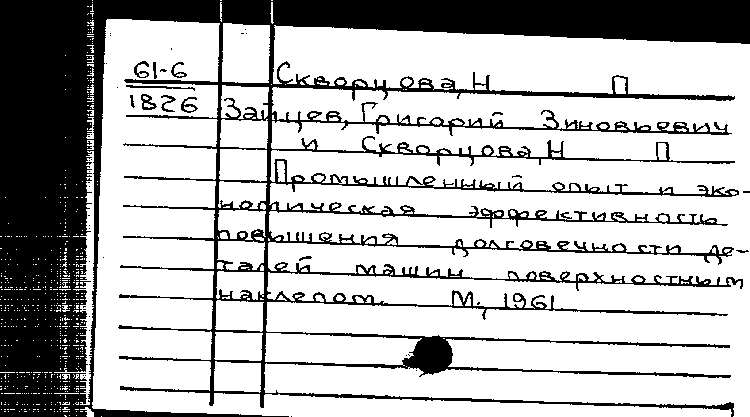 61-6 Скворцова, Н П
1826 Зайцев, Григорий Зиновьевич
и Скворцова, Н П
Промышленный опыт и эко-
номическая эффективность
повышения долговечности де-
талей машин поверхностным
наклепом. М., 1961